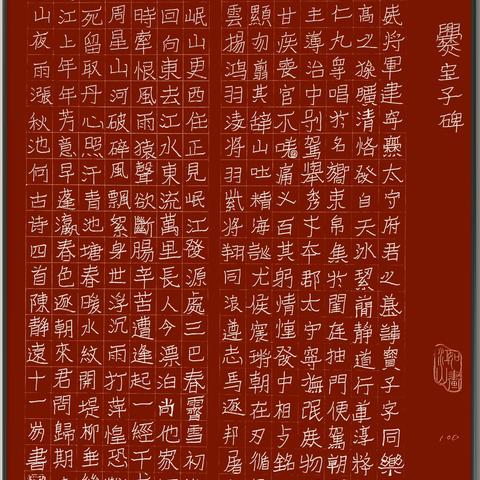 爨宝子碑
威將軍建寧爨太守府君之墓諱寶子字同樂
高之曠清恪發自天冰絜簡靜道行葦淳粹
仁九皋唱於名嚮束帛集於閨庭抽門俟駕朝
主簿治中別駕舉秀才本郡太守寧撫氓庶物
甘疾喪官不嗜痛乂百其躬情慟發中相与銘
顯勿翦其山吐精海誕尤侯宸瑣朝在刃循
雲揚鴻羽淩將羽儀將翔同浪遵志馬遂邦屠
岷山更西任正見岷江發源處三巴春霽雪初
回向東去江水東流萬里長人今漂泊尚他家
時牽恨風雨猿聲欲斷腸辛苦遭逢起一經干
周星山河破碎風飄絮身世浮沉雨打萍惶恐
死留取丹心照汗青池塘春暖水紋開堤柳垂絲
江上年年芳意早蓬瀛春色逐朝來君問歸期
山夜雨漲秋池何古詩四首陳靜遠十一岁書
100